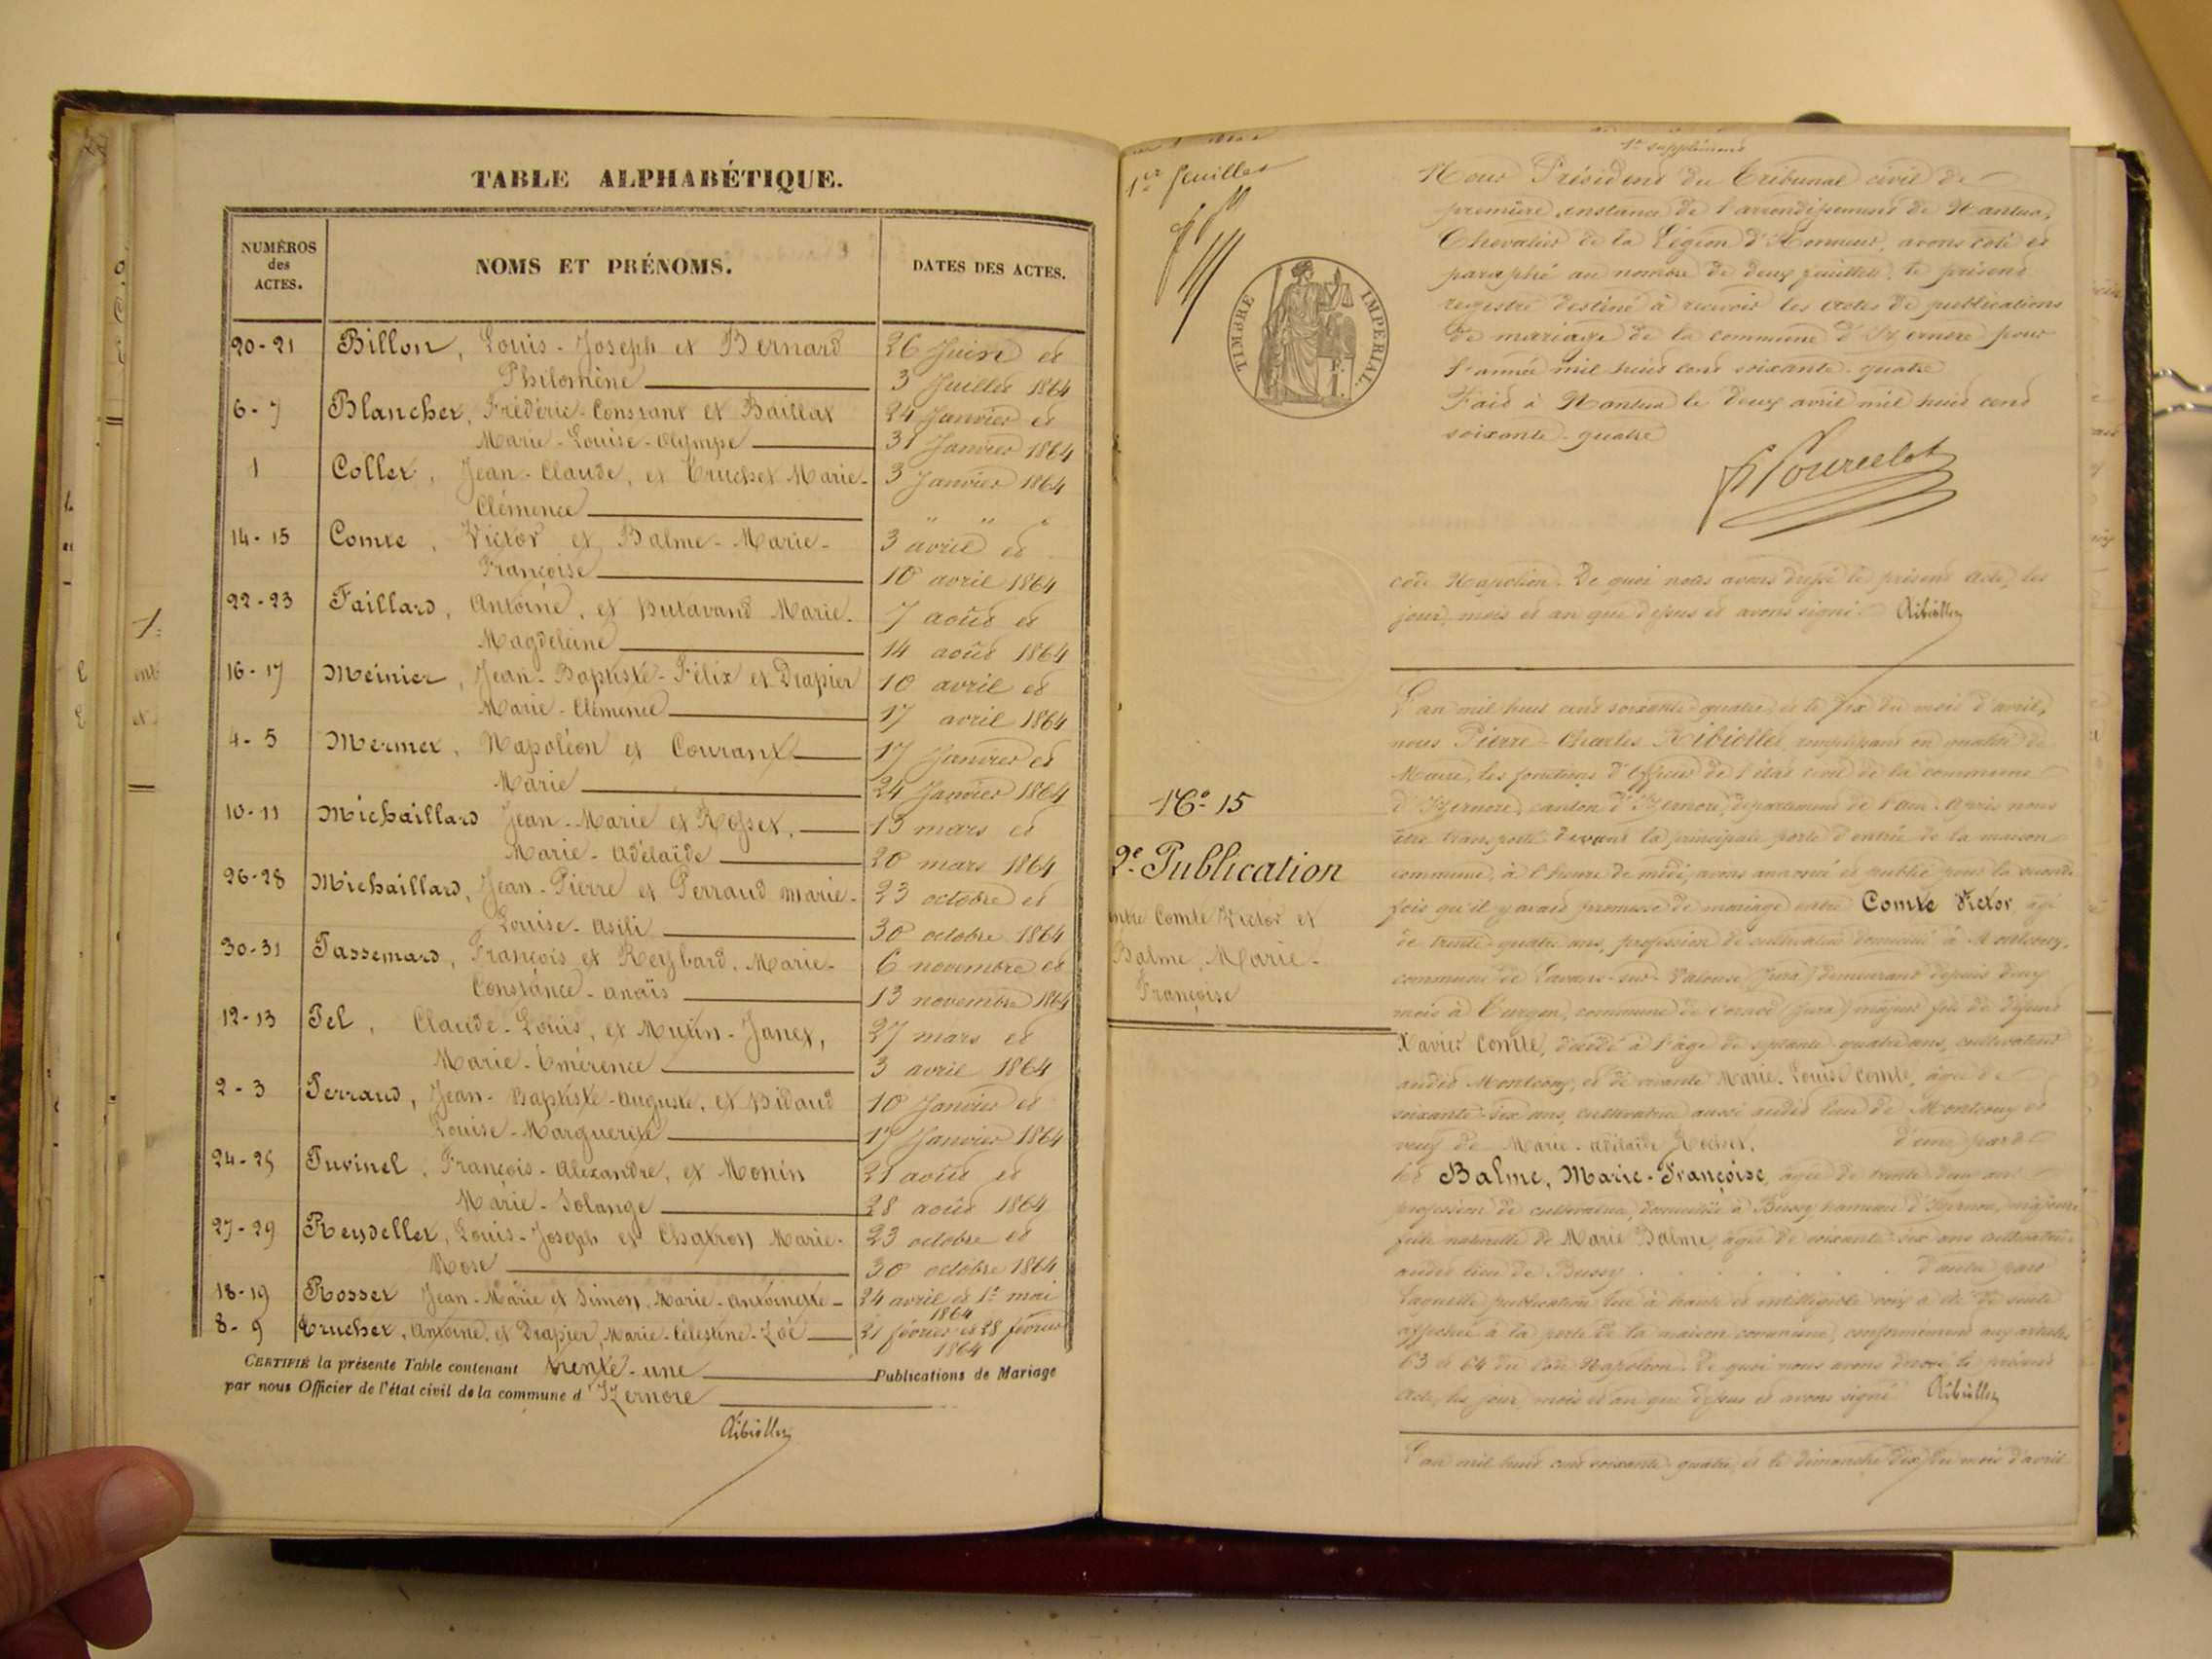 TABLE ALPHABÉTIQUE.
NUMÉROS
des
ACTES.
NOMS ET PRÉNOMS.
DATES DES ACTES.
20-21 Billon, Louis-Joseph et Bernard 26 Juin et
Philomène 3 Juillet 1864
6-7 Blanchet, Frédéric-Constant et Baillat 24 Janvier et
Marie-Louise-Olympe 31 Janvier 1864
1 Collet, Jean-Claude, et Truchet Marie- 3 Janvier 1864
Clémence
14-15 Comte, Victor et Balme-Marie- 3 avril et
Françoise 10 avril 1864
22-23 Faillard, Antoine, et Butavand Marie- 7 août et
Magdeleine 14 août 1864
16-17 Meinier, Jean-Baptiste-Félix et Drapier 10 avril et
Marie-Clémence 17 avril 1864
4-5 Mermet, Napoléon et Courant 17 Janvier et
Marie 24 Janvier 1864
10-11 Michaillard Jean-Marie et Rosset, 13 mars et
Marie-Adélaïde 20 mars 1864
26-28 Michaillard, Jean-Pierre et Perraud marie- 23 octobre et
Louise-Asili 30 octobre 1864
30-31 Passemard, François et Reybard, Marie- 6 novembre et
Constance-anaïs 13 novembre 1864
12-13 Pel, Claude-Louis, et Mutin-Janet, 27 mars et
Marie-Émérence 3 avril 1864
2-3 Perraud, Jean-Baptiste-Auguste, et Bidaud 10 Janvier et
Louise-Marguerite 17 Janvier 1864
24-25 Puvinel, François-Alexandre, et Monin 21 août et
Marie-Solange 28 août 1864
27-29 Reydellet, Louis-Joseph et Chatron Marie- 23 octobre et
Rose 30 octobre 1864
18-19 Rosset Jean-Marie et Simon, Marie-Antoinette- 24 avril et 1er mai
1864
8-9 Truchet, Antoine, et Drapier, Marie-Célestine-Zoé 21 février et 28 février
1864
CERTIFIÉ la présente Table contenant trente-une Publications de Mariage
par nous Officier de l'état civil de la commune d'Izernore
Ribiollet
1er feuillet
TIMBRE IMPERIAL.
1er supplément
Nous Président du Tribunal civil de
première instance de l'arrondissement de Nantua,
Chevalier de la Légion d'Honneur, avons coté et
paraphé au nombre de deux feuillets, le présent
registre destiné à recevoir les actes de publications
de mariage de la commune d'Izernore pour
l'année mil huit cent soixante-quatre
Fait à Nantua le deux avril mil huit cent
soixante-quatre
code Napoléon. De quoi nous avons dressé le présent acte, les
jour, mois et an que dessus et avons signé. Ribiollet
N° 15
2e Publication
entre Comte Victor et
Balme, Marie-
Françoise
L'an mil huit cent soixante quatre et le dix du mois d'avril,
nous Pierre-Charles Ribiollet, remplissant en qualité de
Maire, les fonctions d'officier de l'état civil de la commune
d'Izernore, canton d'Izernore, département de l'Ain. Après nous
être transporté devant la principale porte d'entrée de la maison
commune, à l'heure de midi, avons annoncé et publié pour la seconde
fois qu'il y avait promesse de mariage entre Comte Victor, âgé
de trente-quatre ans, profession de cultivateur domicilié à Montcoux,
commune de Lavans-sur-Valouse (Jura) demeurant depuis deux
mois à commune de (Jura) majeur fils de défunt
Xavier Comte, décédé à l'âge de septante-quatre ans, cultivateur
audit Montcoux, et de vivante Marie-Louise Comte, âgée de
soixante-six ans, cultivatrice aussi audit lieu de Montcoux et
veuf de Marie-Adélaïde Rochet, d'une part
Et Balme, Marie-Françoise, âgée de trente-deux ans
profession de cultivatrice, domiciliée à Bussy, hameau d'Izernore, majeure
fille naturelle de Marie Balme, âgée de soixante-six ans cultivatrice
audit lieu de Bussy d'autre part
Laquelle publication lue à haute et intelligible voix a été de suite
affichée à la porte de la maison commune, conformément aux articles
63 et 64 du Code Napoléon. De quoi nous avons dressé le présent
acte, les jour, mois et an que dessus et avons signé Ribiollet
L'an mil huit cent soixante-quatre et le dimanche dix du mois d'avril